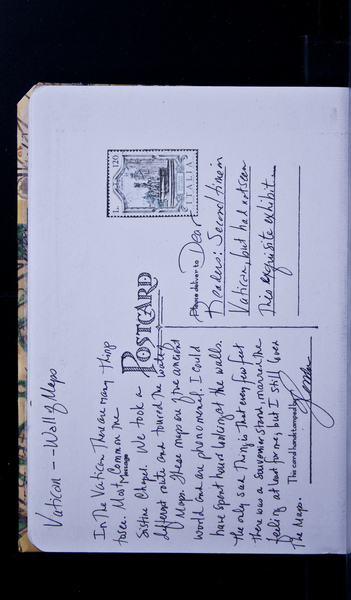 Vatican -- Wall of Maps
In the Vatican there are many things
to see. Most common the
passage
Sistine Chapel. We took a
different route and toured the wall of
Maps. These maps are of the ancient
world and are phenomenal. I could
have spent hours looking at the walls.
The only sad thing is that every few feet
there was a souvenier stand, marred the
feeling at least for me, but I still love
the Maps.
POSTCARD
L. 120
ITALIA
Please deliver to Dear
Readers: Second time in
Vatican, but had not seen
this exquisite exhibit.
This card handstamped by